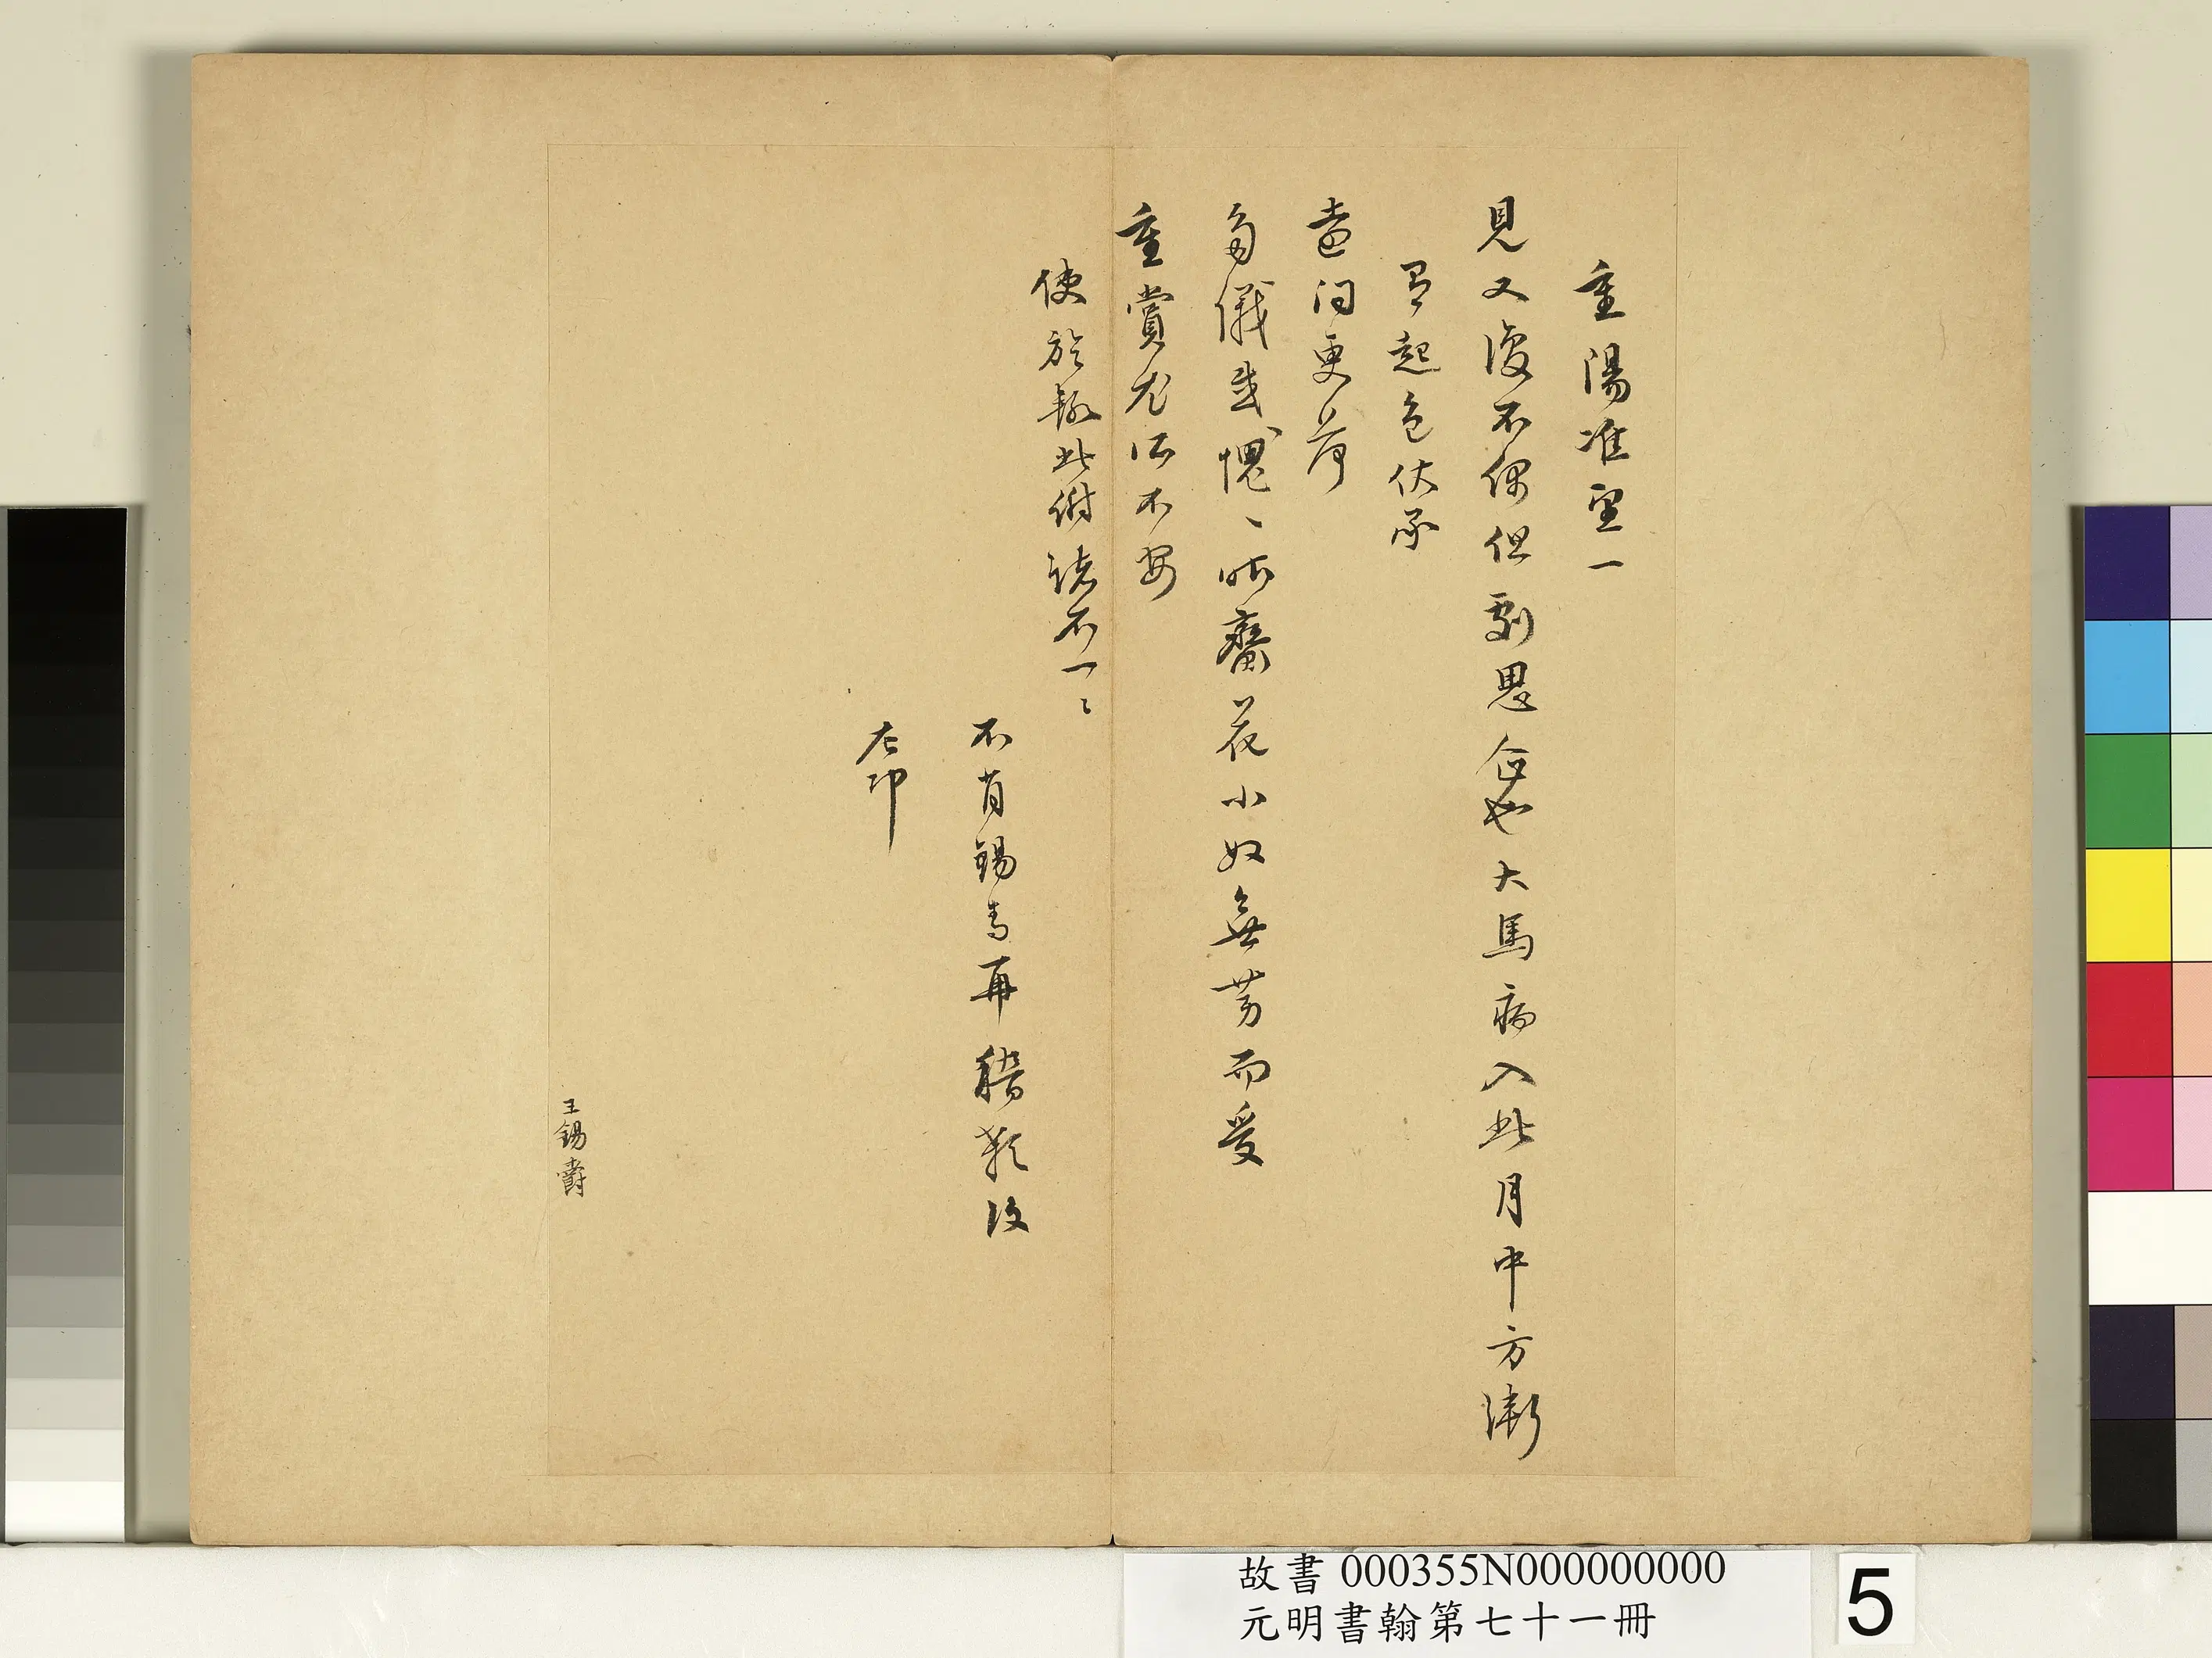 重陽准望一
見又復不偶但劇思念也犬馬病入此月中方漸
有起色伏承
臺問更荷
多儀感愧、所齎花小奴無勞而受
重賞尤所不安
使旋輒此附謝不一、
不肖錫爵再稽顙後
左冲
王錫爵
故書 000355N000000000
元明書翰第七十一冊
5